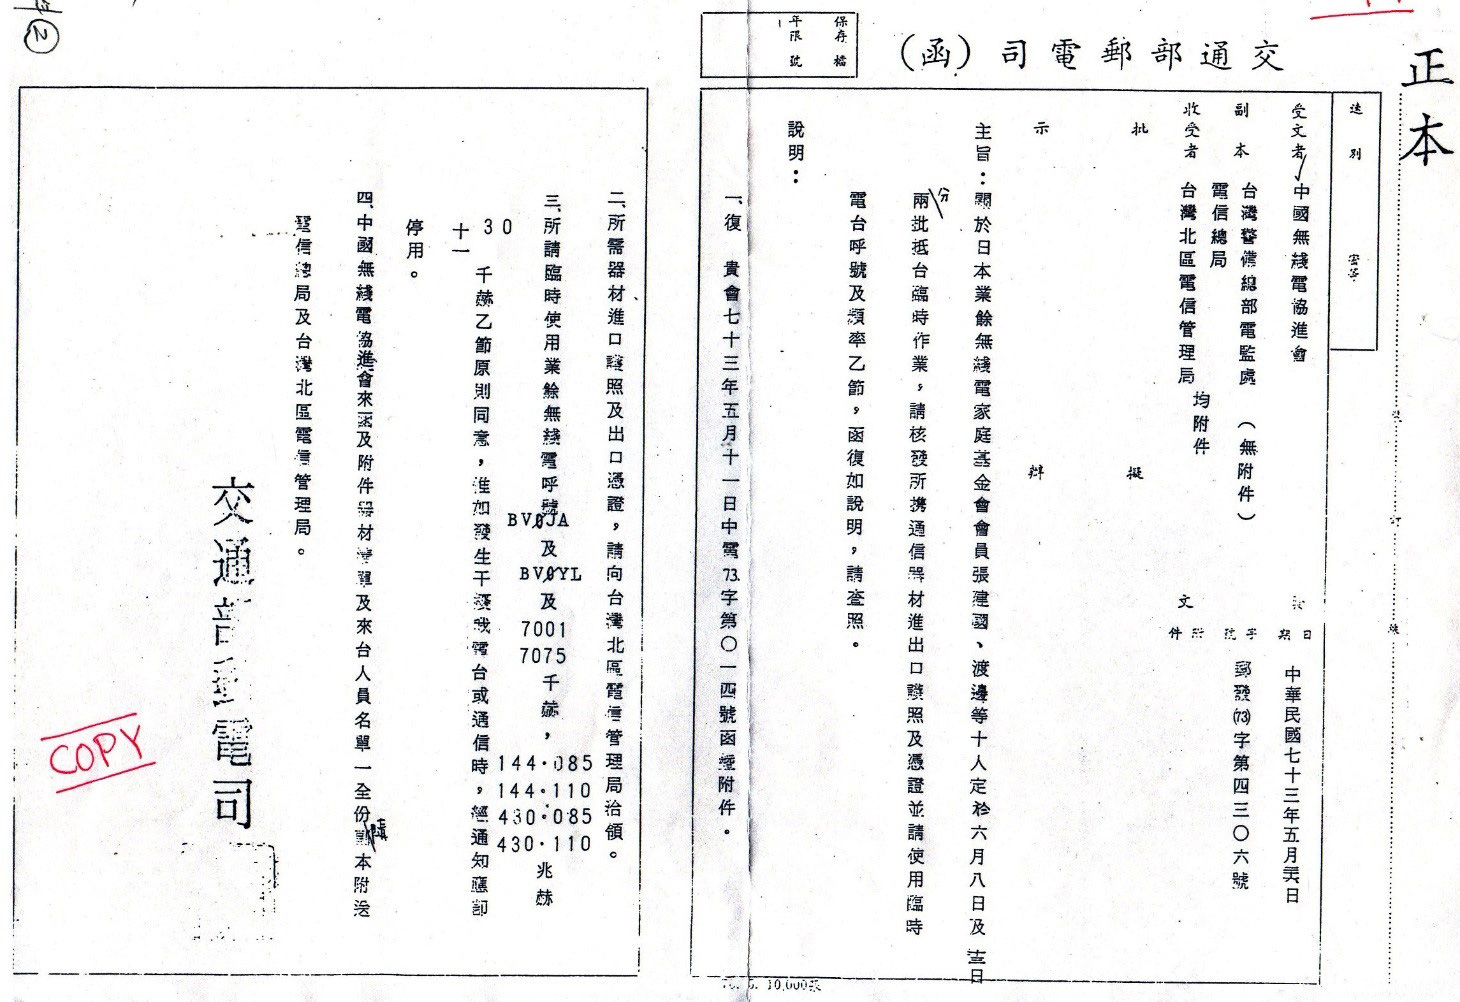 正本
速別
密等
交通部郵電司(函)
保存
年限
檔
號
受文者
中國無綫電協進會
副本
收受者
台灣警備總部電監處(無附件)
電信總局
台灣北區電信管理局
均附件
批
示
擬
辦
文
日期
字號
附件
中華民國七十三年五月 日
郵發(73)字第四三〇六號
主旨:關於日本業餘無綫電家庭基金會會員張建國、渡邊等十人定於六月八日及 日
分兩批抵台臨時作業,請核發所携通信器材進出口護照及憑證並請使用臨時
電台呼號及頻率乙節,函復如說明,請查照。
說明:
一、復 貴會七十三年五月十一日中電73.字第〇一四號函 附件。
二、所需器材進口護照及出口憑證,請向台灣北區電信管理局洽領。
三、所請臨時使用業餘無綫電呼號BV0JA及BV0YL及7001 7075千赫,144.085 144.110 430.085 430.110兆赫
30
十一
千赫乙節原則同意,惟如發生干擾我電台或通信時,經通知應卽
停用。
四、中國無綫電協進會來函及附件器材清單及來台人員名單一全份 隨本附送
電信總局及台灣北區電信管理局。
交通部郵電司
COPY
2
10,000張